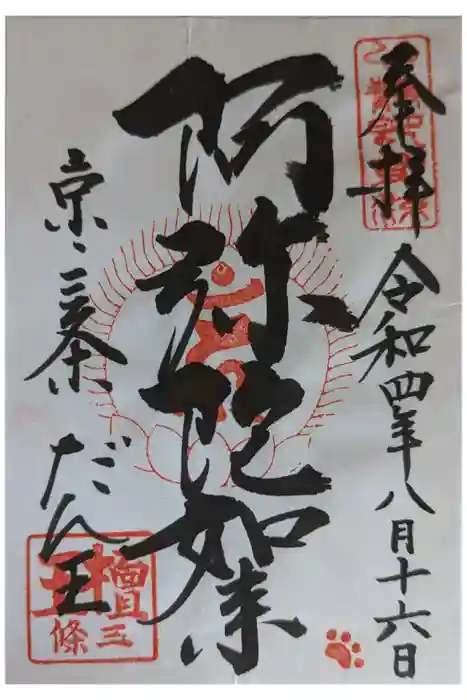 奉拝
令和四年八月十六日
阿弥陀如来
京・三条
だん王
檀王
三條